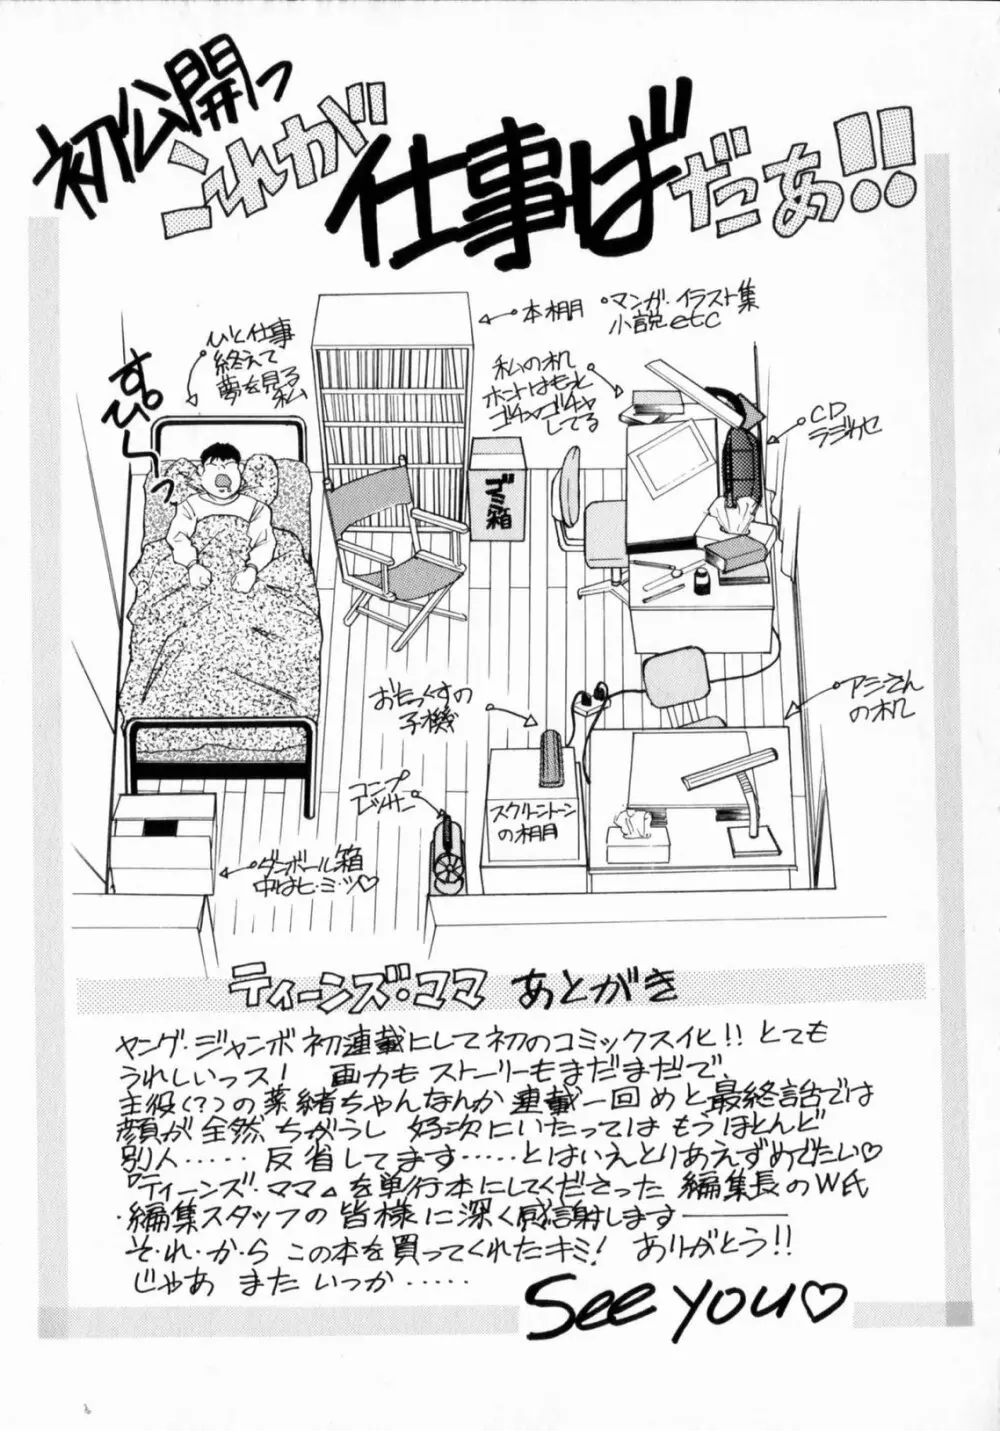 初公開っ
これが
仕事ば
だぁ!!
ひと仕事
終えて
夢を見る
私
すぴ〜っ
本棚
・マンガ・イラスト集
小説etc
私の机
ホントはもっと
ゴチャゴチャ
してる
CD
ラジカセ
ゴミ箱
アシさん
の机
おもっくすの
子機
コンプ
レッサー
スクリーントーン
の棚
ダンボール箱
中はヒ・ミ・ツ♡
ティーンズ・ママ あとがき
ヤング・ジャンボ初連載にして初のコミックスイヒ!! とても
うれしいっス! 画力もストーリーもまだまだで、
主役(?)の薬緒ちゃんなんか連載一回めと最終話では
顔が全然ちがうし 好次にいたってはもうほとんど
別人…… 反省してます……とはいえとりあえずめでたい♡
『ティーンズ・ママ』を単行本にしてくださった編集長のW氏
・編集スタッフの皆様に深く感謝します―――
そ・れ・か・ら この本を買ってくれたキミ! ありがとう!!
じゃあ また いつか……
See you♡